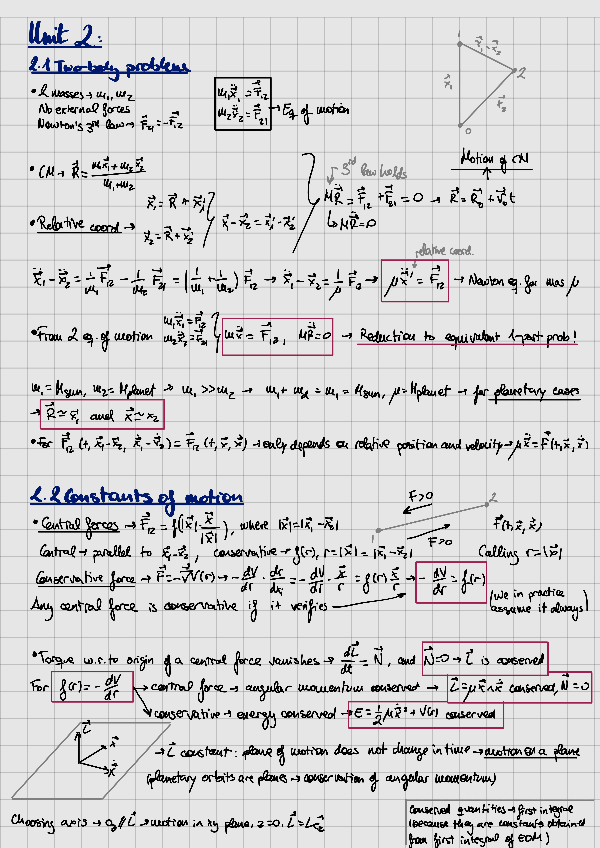 Unit 2:
2.1 Two-body problems
• 2 masses → m₁, m₂
No external forces
Newton's 3rd law → F⃗₂₁ = -F⃗₁₂
m₁ẍ⃗₁ = F⃗₁₂
m₂ẍ⃗₂ = F⃗₂₁
→ Eq of motion
1
x⃗₁-x⃗₂
2
x⃗₁
x⃗₂
0
• CM → R⃗ = (m₁x⃗₁ + m₂x⃗₂)/(m₁+m₂)
• Relative coord →
x⃗₁ = R⃗ + x⃗₁'
x⃗₂ = R⃗ + x⃗₂'
x⃗₁ - x⃗₂ = x⃗₁' - x⃗₂'
3rd law holds
Motion of CM
MR̈⃗ = F⃗₁₂ + F⃗₂₁ = 0 → R⃗ = R⃗₀ + V⃗₀t
↳ MR̈ = 0
relative coord.
ẍ⃗₁ - ẍ⃗₂ = 1/m₁ F⃗₁₂ - 1/m₂ F⃗₂₁ = (1/m₁ + 1/m₂) F⃗₁₂ → ẍ⃗₁ - ẍ⃗₂ = 1/μ F⃗₁₂ → μẍ⃗ = F⃗₁₂ → Newton eq. for mas μ
• From 2 eq. of motion
m₁ẍ⃗₁ = F⃗₁₂
m₂ẍ⃗₂ = F⃗₂₁
mẍ = F⃗₁₂, MR̈ = 0 → Reduction to equivalent 1-part prob!
m₁ = Msun, m₂ = Mplanet → m₁ >> m₂ → m₁ + m₂ = m₁ = Msun, μ = Mplanet → for planetary cases
→ R⃗ ≃ x⃗₁ and x⃗ ≃ x₂
• For F⃗₁₂ (t, x⃗₁-x⃗₂, ẋ⃗₁-ẋ⃗₂) = F⃗₁₂ (t, x⃗, ẋ⃗) → only depends on relative position and velocity → μẍ⃗ = F⃗(t, x⃗, ẋ⃗)
2.2 Constants of motion
• Central forces → F⃗₁₂ = f(|x⃗|) x⃗/|x⃗|, where |x⃗| = |x⃗₁-x⃗₂|
F>0
2
1
F>0
F⃗(t, x⃗, ẋ⃗)
Central → parallel to x⃗₁-x⃗₂, conservative → f(r), r = |x⃗| = |x⃗₁-x⃗₂|
Calling r = |x⃗|
Conservative force → F⃗ = -∇⃗V(r) → -dV/dr · dr/dxᵢ = -dV/dr · x⃗/r = f(r) x⃗/r → -dV/dr = f(r)
Any central force is conservative if it verifies
(We in practice
assume it always)
• Torque w.r.to origin of a central force vanishes → dL⃗/dt = N⃗, and N⃗=0 → L⃗ is conserved
For f(r) = -dV/dr → central force → angular momentum conserved → L⃗ = μx⃗×ẋ⃗ conserved, N⃗ = 0
conservative → energy conserved → E = ½μẋ⃗² + V(r) conserved
L⃗
ẋ⃗
x⃗
→ L⃗ constant: plane of motion does not change in time → motion on a plane
(planetary orbits are planes → conservation of angular momentum)
Choosing axis → oz // L⃗ → motion in xy plane, z=0, L⃗ = Le⃗z
Conserved quantities → first integral
(because they are constants obtained
from first integral of EOM)